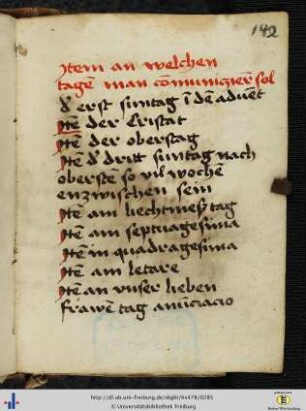 142
Jtem an welchen
tagē man cōmunizierē sol
d' erst suntag ī dē advēt
Jtē der Cristat
Jtē der oberstag
Jtē d' dritt suntag nach
oberstē so vil wochē
enzwischen sein
Jtē am liechtmeß tag
Jtē am septuagesima
Jtē in quadragesima
Jtē am letare
Jtē an vnser lieben
frawē tag anūciacio
http://dl.ub.uni-freiburg.de/diglit/hs478/0285
© Universitätsbibliothek Freiburg